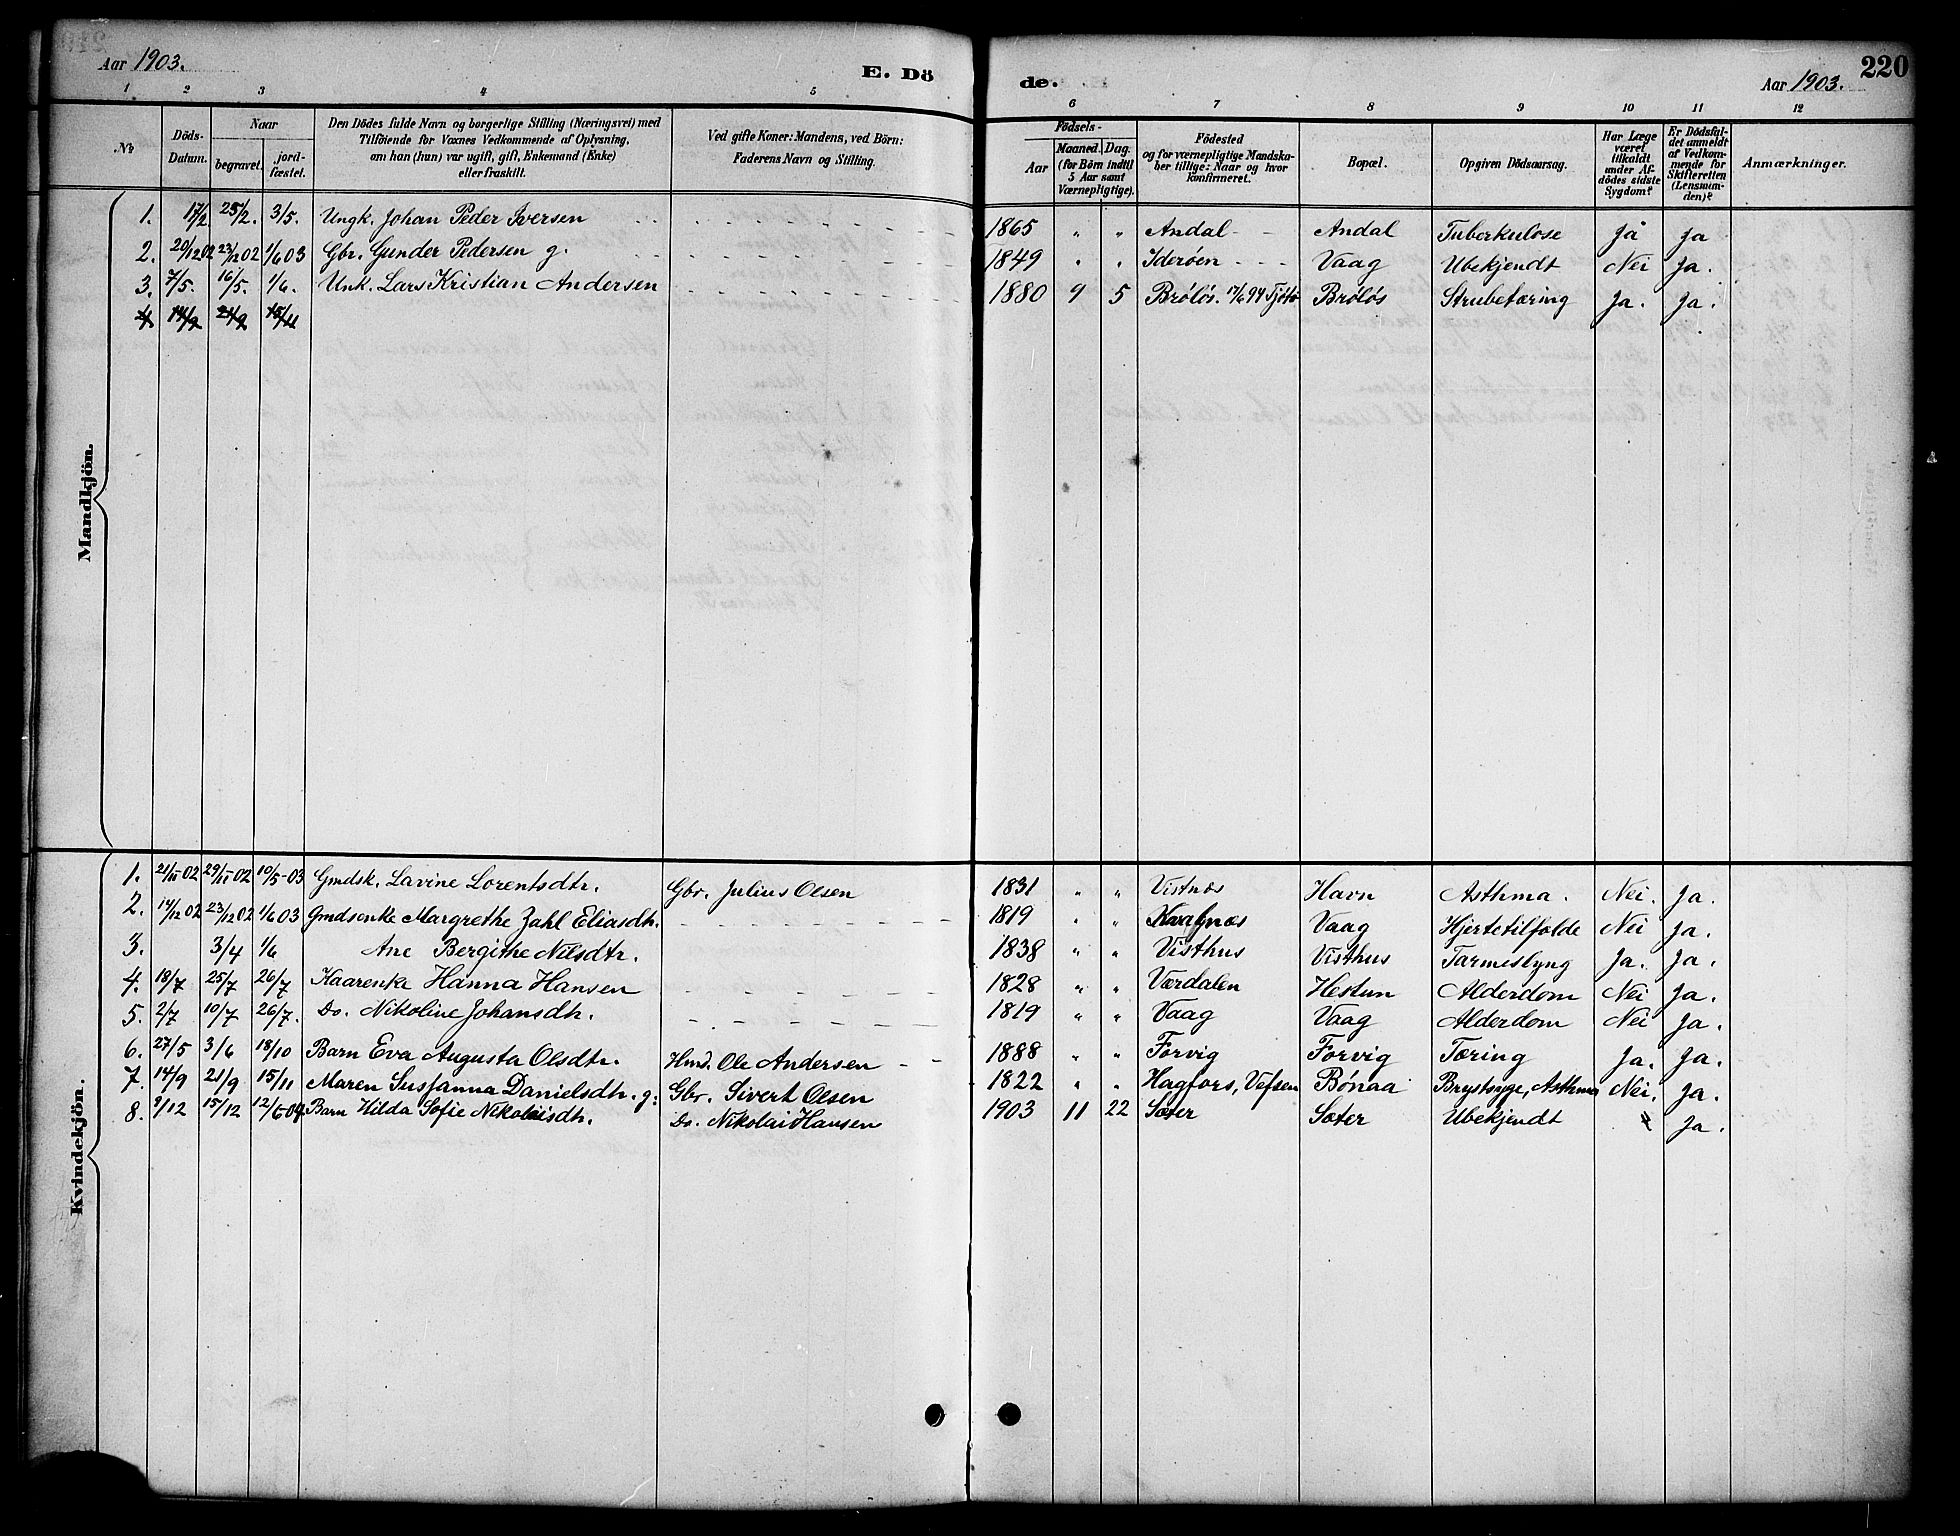 Aar 1903.
E. Dö
de.
Aar 1903.
220
1 2 3 4 5 6 7 8 9 10 11 12
No
Döds-Datum.
Naar
begravet.
jord-fæstet.
Den Dödes fulde Navn og borgerlige Stilling (Næringsvei) med
Tilföiende for Voxnes Vedkommende af Oplysning,
om han (hun) var ugift, gift, Enkemand (Enke)
eller fraskilt.
Ved gifte Koner: Mandens, ved Börn:
Faderens Navn og Stilling.
Födsels-
Aar
Maaned. Dag.
(for Börn indtil
5 Aar samt
Værnepligtige).
Födested
og for værnepligtige Mandska-
ber tillige: Naar og hvor
konfirmeret.
Bopæl.
Opgiven Dödsaarsag.
Har Læge
været
tilkaldt
under Af-
dödes sidste
Sygdom?
Er Dödsfal-
det anmeldt
af Vedkom-
mende for
Skifteretten
(Lensman-
den)?
Anmærkninger.
Mandkjön.
1. 17/2 25/2. 3/5. Ungk. Johan Peder Iversen 1865 " " Andal Andal Tuberkulose Ja Ja
2. 20/12 02 23/12 02 1/6 03 Gbr. Gunder Pedersen g. 1849 " " Iderøen Vaag Ubekjendt Nei Ja.
3. 7/5. 16/5. 1/6. Unk. Lars Kristian Andersen 1880 9 5 Brøløs. 17/6 94 Tjøtta Brøløs Strubetæring Ja. Ja.
4 14/9 21/9 15/11
Kvindekjön.
1. 21/11 02 29/11 02 10/5-03 Gmdsk. Lavine Lorentsdtr. Gbr. Julius Olsen 1831 " " Vistnæs Havn Asthma. Nei. Ja.
2. 14/12 02 23/12 02 1/6 03 Gmdsenke Margrethe Zahl Eliasdtr. 1819 " " Kvalnæs Vaag Hjertetilfælde Nei Ja.
3. 3/4 1/6 Ane Bergithe Nilsdtr. 1838 " " Visthus Visthus Tarmeslyng Ja. Ja.
4. 18/7 25/7 26/7 Kaarenke Hanna Hansen 1828 " " Værdalen Hestun Alderdom Nei Ja.
5. 2/7 10/7 26/7. Do. Nikoline Johansdtr. 1819 " " Vaag Vaag Alderdom Nei Ja.
6. 27/5 3/6 18/10 Barn Eva Augusta Olsdtr. Hmd. Ole Andersen 1888 " " Forvig Forvig Tæring Ja. Ja.
7. 14/9 21/9 15/11 Maren Susanna Danielsdtr. g: Gbr. Sivert Olsen 1822 " " Hagfors, Vefsen Bønaa Brystsyge, Asthma Nei. Ja.
8. 9/12 15/12 12/5-04 Barn Hilda Sofie Nikolaisdtr. Do. Nikolai Hansen 1903 11 22 Sæter Sæter Ubekjendt Ja.